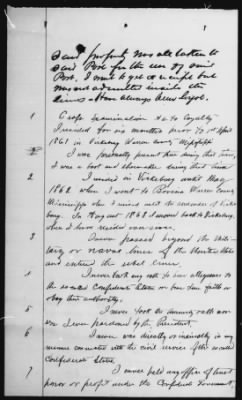 said property was all taken to
said Post for the use of said
Post. I tried to get a receipt but
was not admitted inside the
lines - Have always been loyal.
Cross Examination as to Loyalty
1 I resided for six months prior to 1st April
1861 in Vicksburg Warren County Mississippi
I was personally present here during that time,
I was a boot and shoe maker during that time
2 I resided in Vicksburg until May
1862 when I went to Bovina Warren County
Mississippi where I resided until the surrender of Vicks
burg. In August 1863 I moved back to Vicksburg,
where I have resided ever since.
I never passed beyond the Mili-
tary or naval lines of the United States
and entered the rebel lines.
I never took any oath to bear allegiance to
the so called Confederate States or bear true faith or
obey their authority.
5 I never took the amnesty oath nor
was I ever pardoned by the President.
6 I never was directly or indirectly in any
manner connected with the civil service of the so called
Confederate States.
7 I never held any office of trust
honor or profit under the Confederate Government,